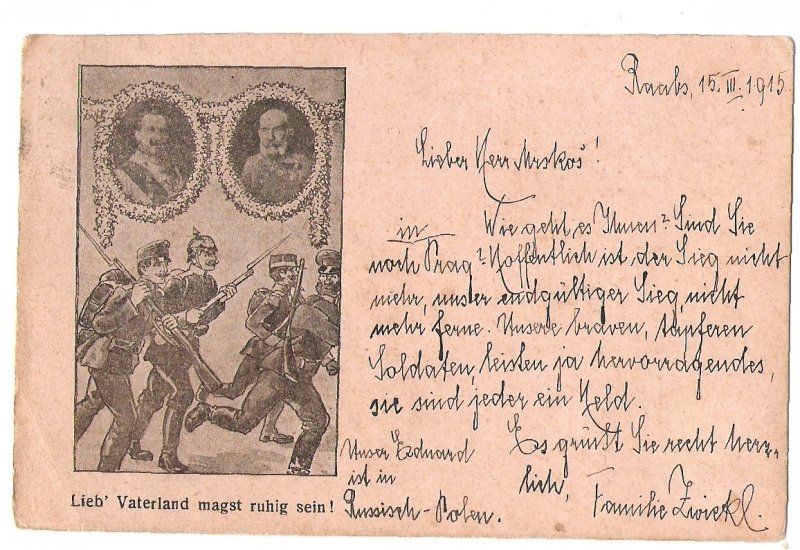 Raabs, 15. III. 1915
Lieber Herr Mrskoš!
in Wie geht es Ihnen? Sind Sie
noch Prag? Hoffentlich ist der Sieg nicht
mehr, unser endgültiger Sieg, nicht
mehr ferne. Unsere braven, tapferen
Soldaten, leisten ja hervorragendes,
sie sind jeder ein Held.
Es grüßt Sie recht herz-
lich,
Familie Zwickl.
Unser Eduard
ist in
Russisch-Polen.
Lieb' Vaterland magst ruhig sein!